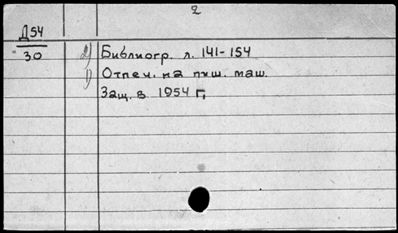 2
Д54
30
2) Библиогр. л. 141-154
1) Отпеч. на пиш. маш.
Защ. в 1954 г.